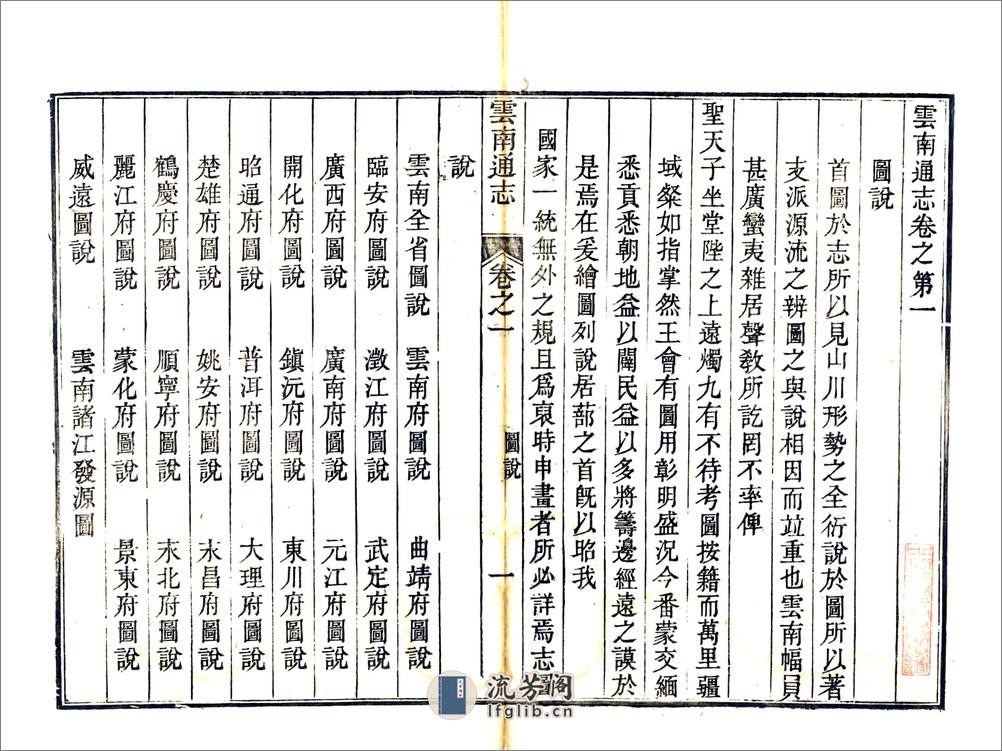 雲南通志卷之第一
圖說
首圖於志所以見山川形勢之全衍說於圖所以著
支派源流之辨圖之與說相因而竝重也雲南幅員
甚廣蠻夷雜居聲敎所訖罔不率俾
聖天子坐堂陛之上遠燭九有不待考圖按籍而萬里疆
域粲如指掌然王會有圖用彰明盛況今番蒙交緬
悉貢悉朝地益以闢民益以多將籌邊經遠之謨於
是焉在爰繪圖列說居蔀之首旣以昭我
國家一統無外之規且爲裒時申畫者所必詳焉志圖
雲南通志 卷之一 圖說 一
說
雲南全省圖說 雲南府圖說 曲靖府圖說
臨安府圖說 澂江府圖說 武定府圖說
廣西府圖說 廣南府圖說 元江府圖說
開化府圖說 鎭沅府圖說 東川府圖說
昭通府圖說 普洱府圖說 大理府圖說
楚雄府圖說 姚安府圖說 永昌府圖說
鶴慶府圖說 順寧府圖說 永北府圖說
麗江府圖說 蒙化府圖說 景東府圖說
威遠圖說 雲南諸江發源圖
流芳阁
lfglib.cn